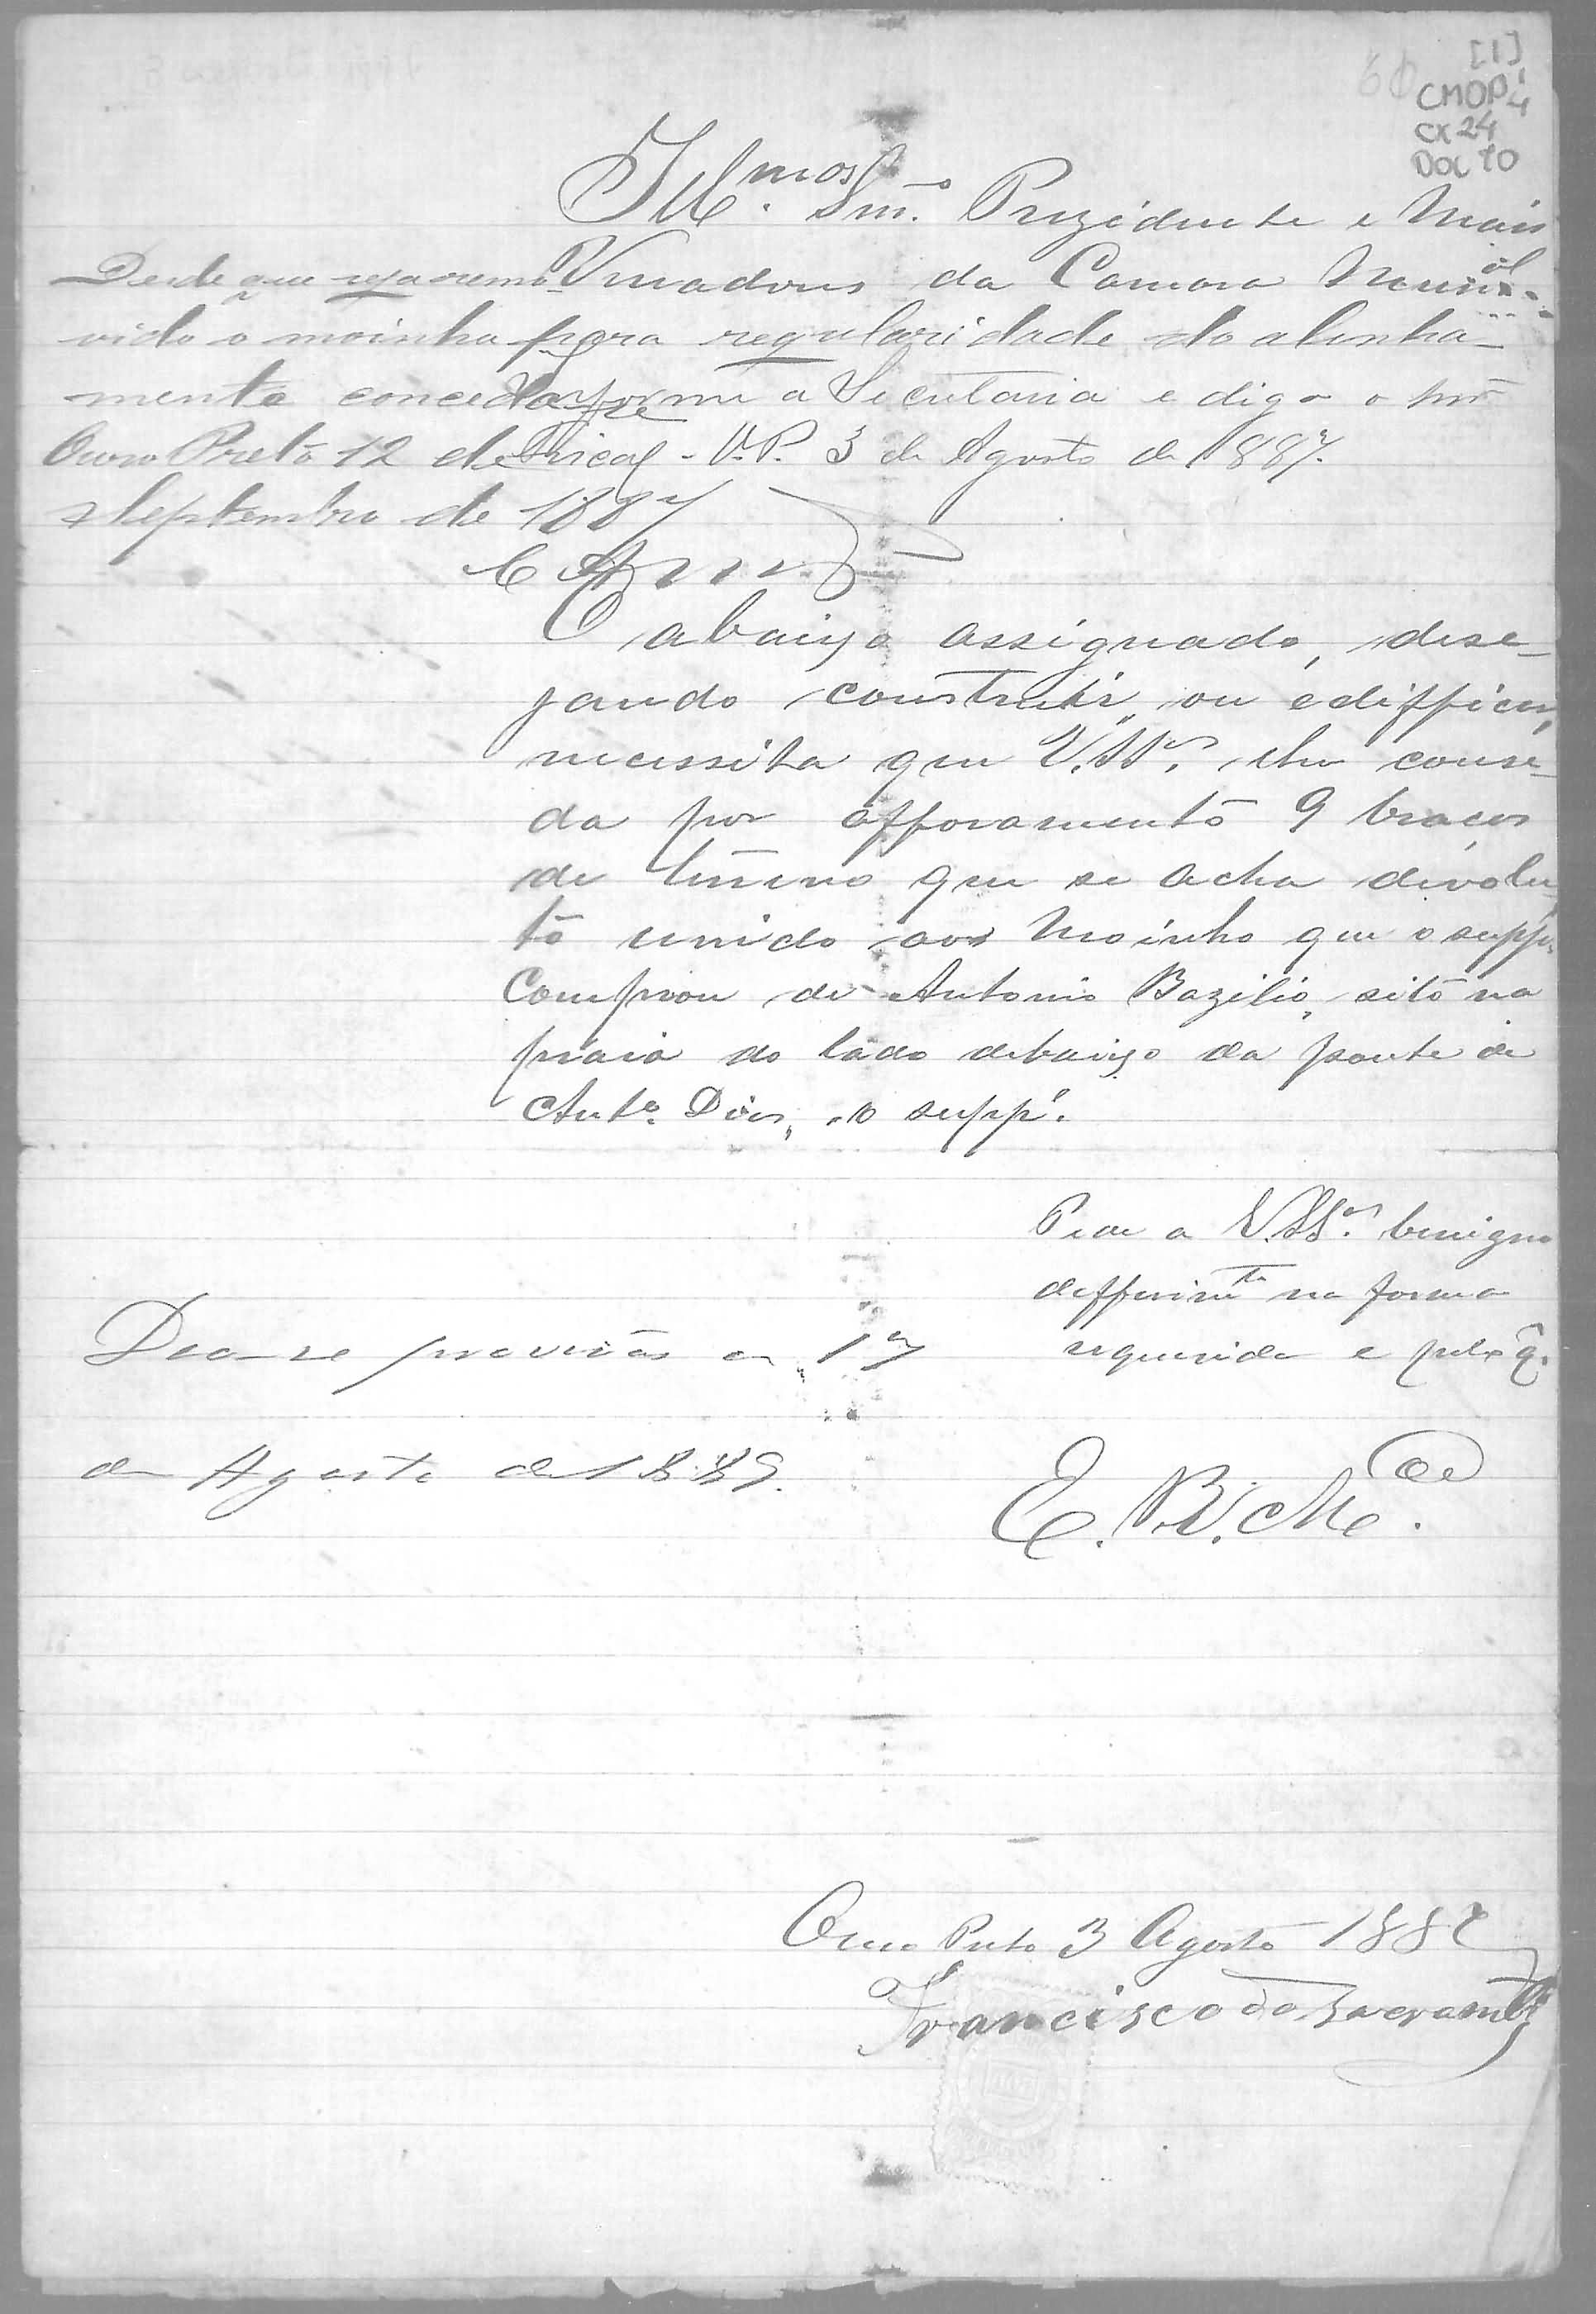 [1]
CMOP
CX 24
DOC 70
Ill.mos Snr.o Prezidente e Mais
Vreadores da Camara Munial
Desde que seja remo
vido o moinho para regularidade do alinha-
mento conceda-se
Ouro Preto 12 de
Septembro de 1887
Informe a Secretaria e diga o Snr
Fiscal - O.P. 3 de Agosto de 1887.
O abaixo assignado, dese-
jando construir, ou ediffica,
necessita que V.SSas. lhe conse-
da por afforamento 9 braças
de terreno que se acha devolu-
to unido aos Moinho que o suppe
Comprou de Antonio Bazilio, sito na
praia do lado debaixo da ponte de
Anto. Dias, o suppe.
Pede a V.SSas. benigno
defferimto na forma
requerida e pelo q.
E. R. Mce.
Deo-se provisão em 17
de Agosto de 1889.
Ouro Preto 3 Agosto 1887
Francisco do Sacramto